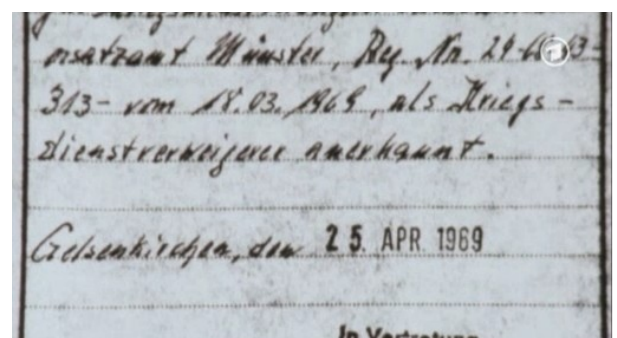 ersatzamt Münster, Reg. Nr. 24-
313- vom 18.03.1969, als Kriegs-
dienstverweigerer anerkannt.
Gelsenkirchen, den 25. APR. 1969
In Vertretung